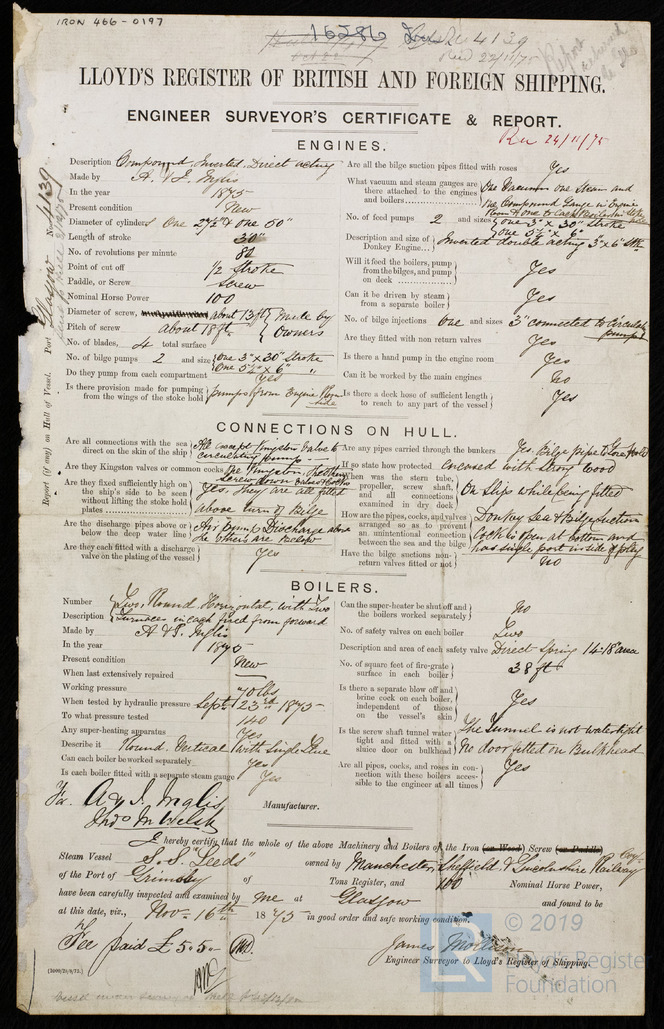 IRON 466-0197
15286 Iron 4139
Recd 22/11/75
LLOYD'S REGISTER OF BRITISH AND FOREIGN SHIPPING.
ENGINEER SURVEYOR'S CERTIFICATE & REPORT.
24/11/75
Report (if any) on Hull of Vessel. Port Glasgow No. 4139
ENGINES.
Description Compound, Inverted, Direct acting
Made by A. & J. Inglis
In the year 1875
Present condition New
Diameter of cylinders One 27½" & one 50"
Length of stroke 30"
No. of revolutions per minute 82
Point of cut off ½ stroke
Paddle, or Screw Screw
Nominal Horse Power 100
Diameter of screw, about 13 ft Made by
Pitch of screw about 18 ft Owners
No. of blades, 4 total surface
No. of bilge pumps 2 and size One 3" x 30" Stroke
One 5½" x 6" "
Do they pump from each compartment Yes
Is there provision made for pumping from the wings of the stoke hold pumps from Engine Room
Are all the bilge suction pipes fitted with roses Yes
What vacuum and steam gauges are there attached to the engines and boilers One Vacuum one Steam and
one Compound Gauge in Engine
Room & one to Each Boiler in
No. of feed pumps 2 and sizes One 3" x 30" Stroke
One 5½" x 6"
Description and size of Donkey Engine Inverted double acting 3" x 6" Stk.
Will it feed the boilers, pump from the bilges, and pump on deck Yes
Can it be driven by steam from a separate boiler Yes
No. of bilge injections One and sizes 3" connected to circulating
pump
Are they fitted with non return valves Yes
Is there a hand pump in the engine room Yes
Can it be worked by the main engines No
Is there a deck hose of sufficient length to reach to any part of the vessel Yes
CONNECTIONS ON HULL.
Are all connections with the sea direct on the skin of the ship All except Kingston Valve to
circulating pump
Are they Kingston valves or common cocks One Kingston, the others
Screw down valves & cocks
Are they fixed sufficiently high on the ship's side to be seen without lifting the stoke hold plates Yes, they are all fitted
above turn of Bilge
Are the discharge pipes above or below the deep water line Air Pump Discharge above
the others are Below
Are they each fitted with a discharge valve on the plating of the vessel Yes
Are any pipes carried through the bunkers Yes, Bilge pipe to Fore Hold
If so state how protected Encased with strong wood
When was the stern tube, propeller, screw shaft, and all connections examined in dry dock On Slip while being fitted
How are the pipes, cocks, and valves arranged so as to prevent an unintentional connection between the sea and the bilge Donkey Sea & Bilge Suction
cock is open at bottom and
has single port in side of plug
Have the bilge suctions non-return valves fitted or not No
BOILERS.
Number Two, Round, Horizontal, with Two
Description Furnaces in each fired from forward
Made by A & J. Inglis
In the year 1875
Present condition New
When last extensively repaired
Working pressure 70 lbs
When tested by hydraulic pressure Sept 23rd 1875
To what pressure tested 140
Any super-heating apparatus Yes
Describe it Round, Vertical, with Single Flue
Can each boiler be worked separately Yes
Is each boiler fitted with a separate steam gauge Yes
Can the super-heater be shut off and the boilers worked separately No
No. of safety valves on each boiler Two
Description and area of each safety valve Direct Spring 14·18" area
No. of square feet of fire-grate surface in each boiler 38 ft
Is there a separate blow off and brine cock on each boiler, independent of those on the vessel's skin Yes
Is the screw shaft tunnel water tight and fitted with a sluice door on bulkhead The Tunnel is not watertight
No door fitted on Bulkhead
Are all pipes, cocks, and roses in connection with these boilers accessible to the engineer at all times Yes
For A & J. Inglis
Manufacturer.
I hereby certify that the whole of the above Machinery and Boilers of the Iron (or Wood) Screw (or Paddle)
Steam Vessel S.S. "Leeds" owned by Manchester, Sheffield, & Lincolnshire Railway Coy
of the Port of Grimsby of Tons Register, and 100 Nominal Horse Power,
have been carefully inspected and examined by me at Glasgow and found to be
at this date, viz., Nov. 16th 1875 in good order and safe working condition.
Fee paid £5.5.-
James Mollison
Engineer Surveyor to Lloyd's Register of Shipping.
© 2019
Lloyd's Register
Foundation